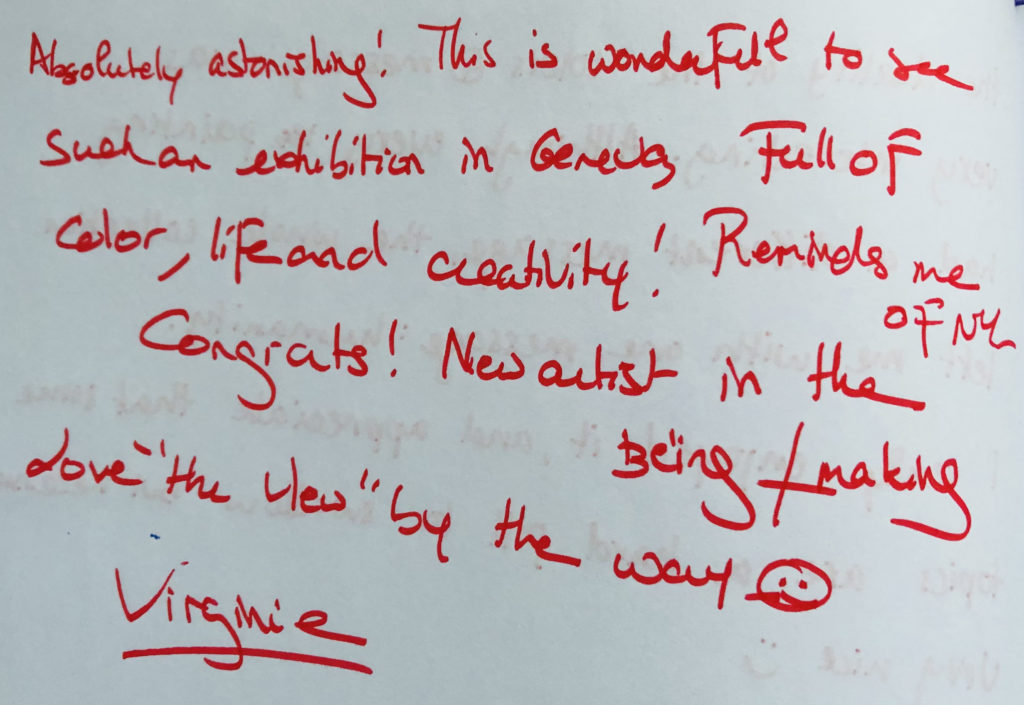 Absolutely astonishing! This is wonderfull to see
such an exhibition in Geneva, Full of
color, life and creativity! Reminds me
of NY
Congrats! New artist in the
Being/making
Love "the view" by the way ☺
Virginie